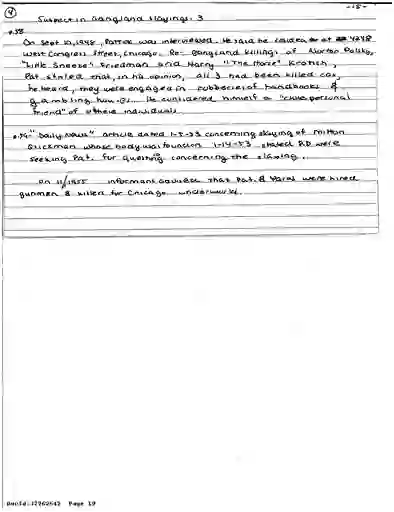 4
-15-
Suspect in Gangland Slayings. 3
p.58
On Sept 10, 1948, Patrick was interviewed. He said he resided at 4248
West Congress Street, Chicago. Re- gangland killings of Norton Polsky,
"Little Sneeze" Friedman and Harry "The Horse" Krotish,
Pat. stated that, in his opinion, all 3 had been killed cos,
he heard, they were engaged in robberies of handbooks &
gambling houses. He considered himself a "close personal
friend" of these individuals.
p.59 "Daily News" article dated 1-7-53 concerning slaying of Milton
Glickman whose body was found on 1-14-53 stated P.D were
seeking Pat. for questing concerning the slaying.
On 11/1955 informant advised that Pat. & Yaras were hired
gunmen & killers for Chicago underworld.
Page 19